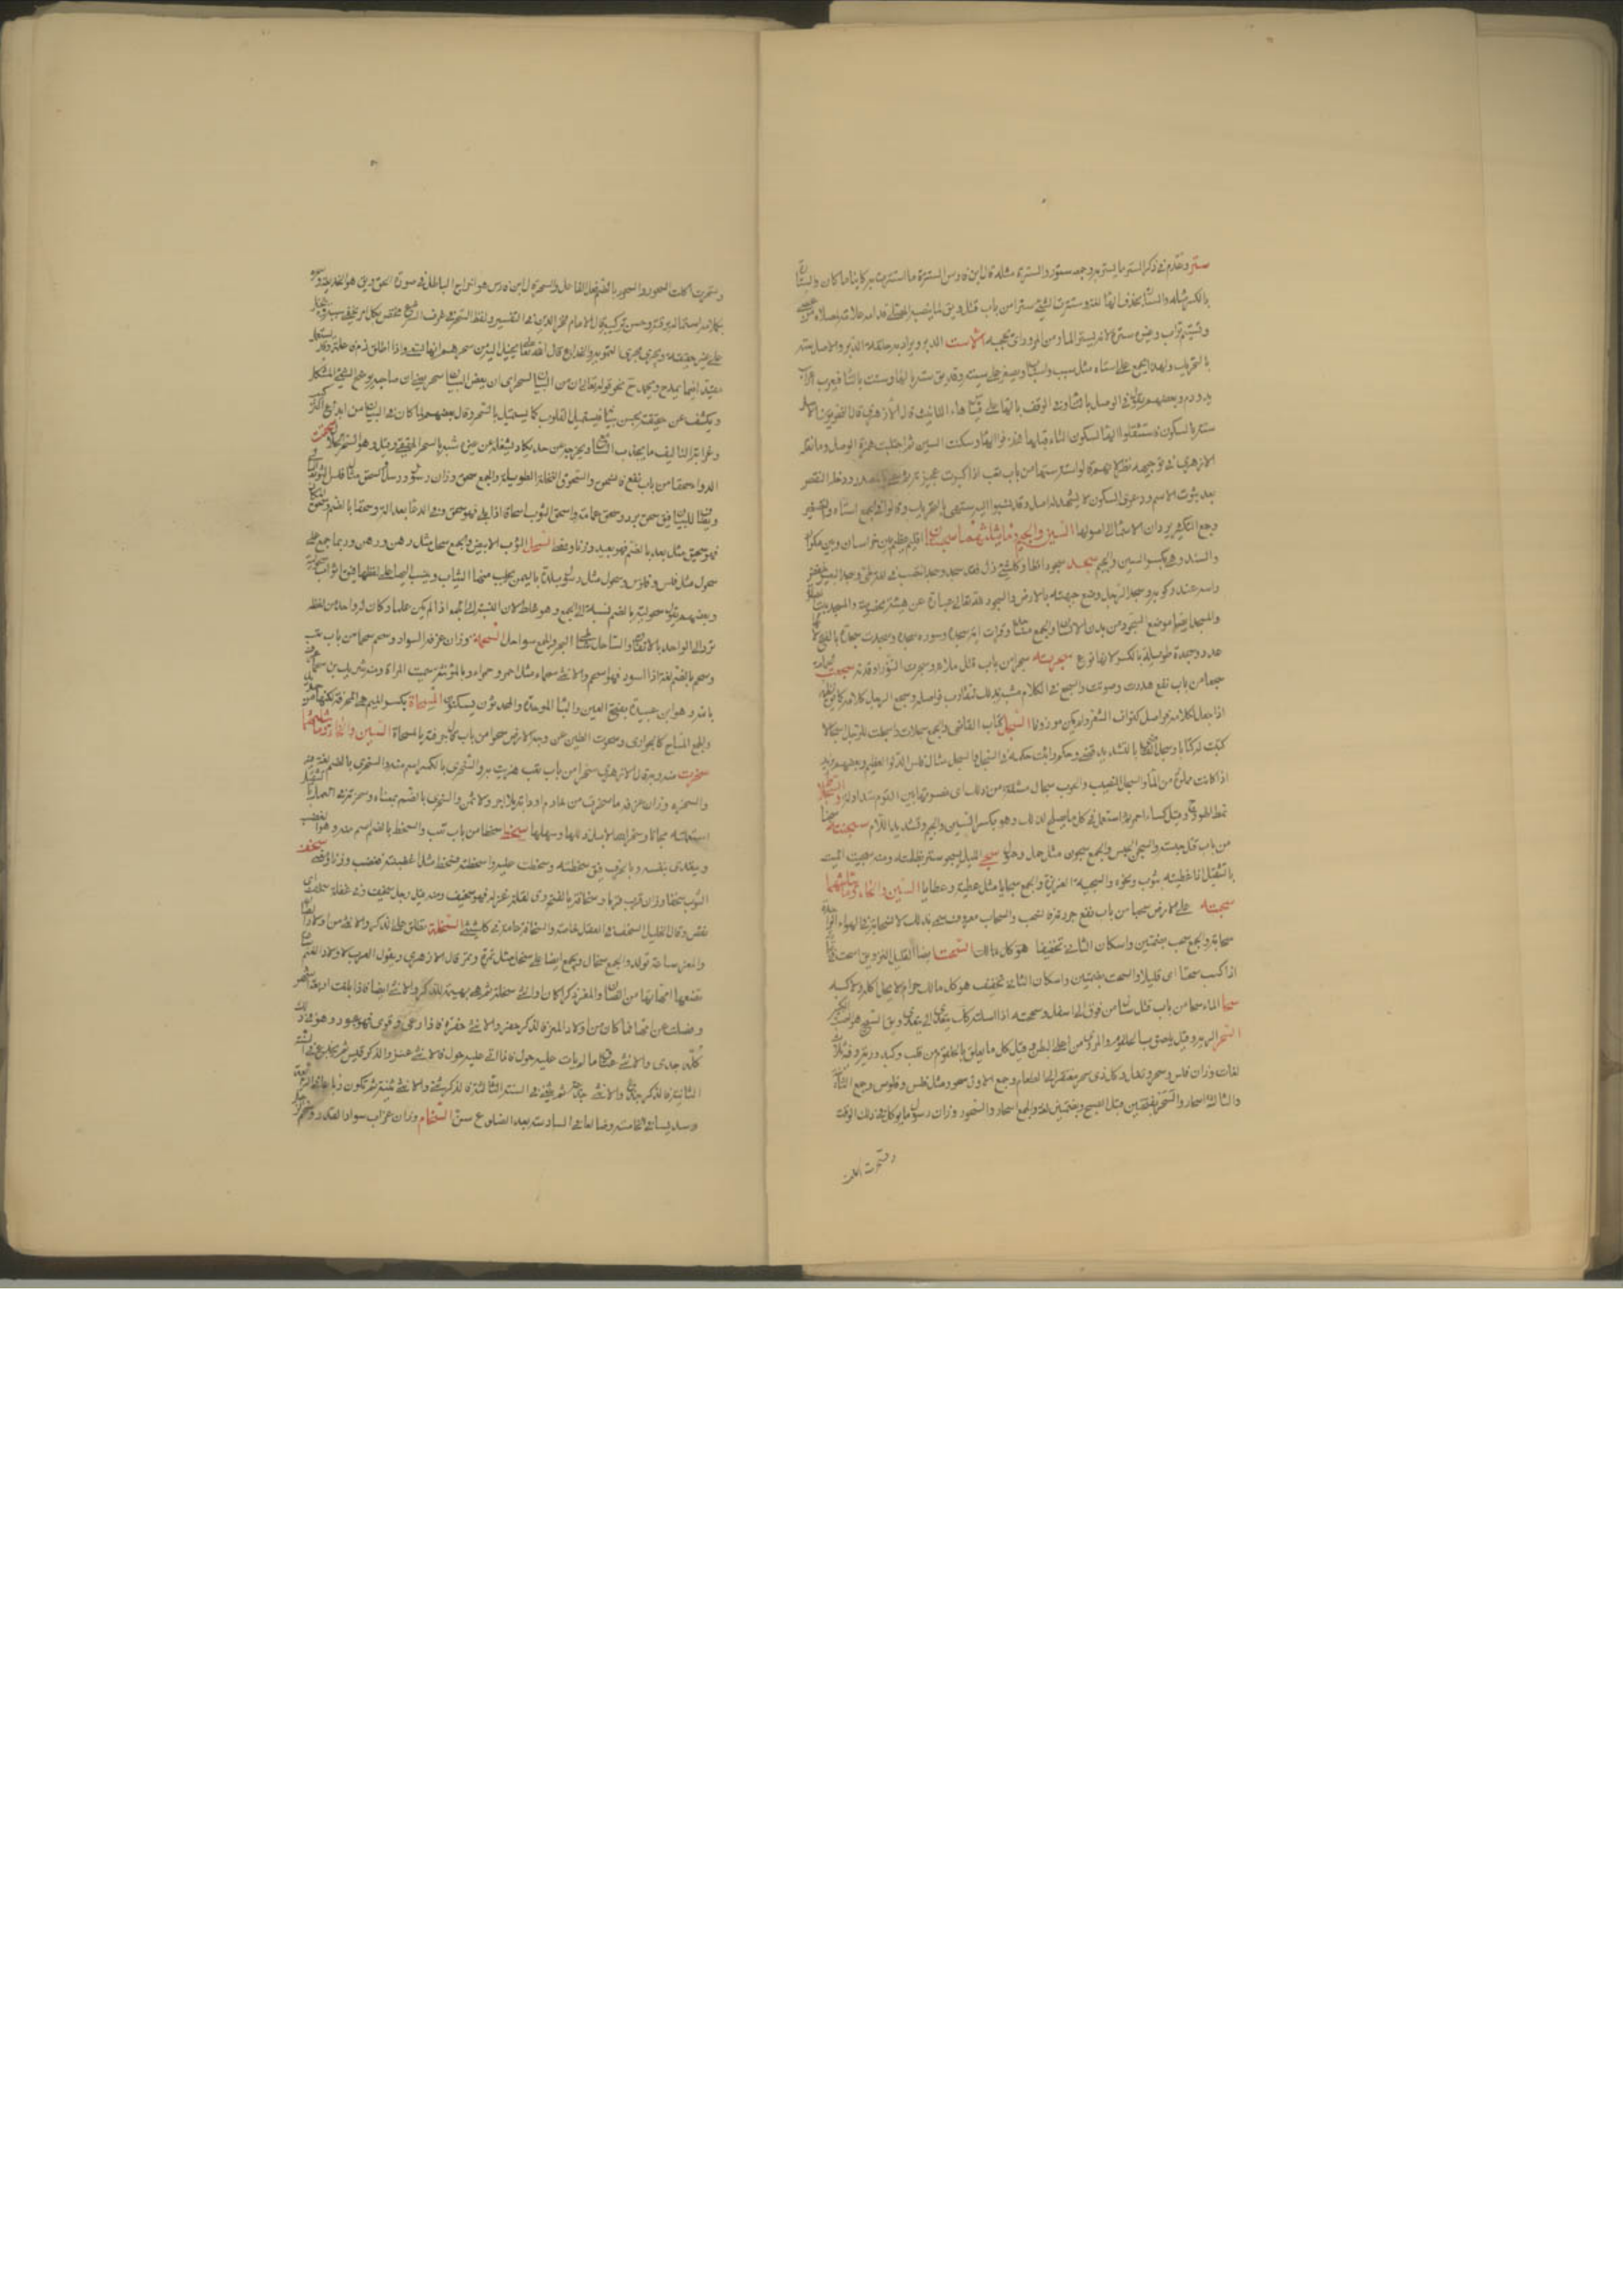 ستر وتقدم في ذكر الستر ما يستر به وجمعه ستور والسترة مثله قال ابن فارس السترة ما استترت به كائنا ما كان والستارة
بالكسر مثله والستار بحذف الهاء لغة وسترت الشيء سترا من باب قتل ويق لما ينصبه المصلي قدامه علامة لمصلاه من عصا
وتسنيم تراب وغيره سترة لانه يستر المار من المرور اي يحجبه الاست الدبر ويراد به حلقة الدبر والاصل سته
بالتحريك ولهذا يجمع على استاه مثل سبب واسباب ويصغر على ستيه وقد يق سه بالهاء وست بالتاء فيعرب اعراب
يد ودم وبعضهم يقول في الوصل بالتاء وفي الوقف بالهاء على قياس هاء التانيث قال الازهري قال النحويون الاصل
سته بالسكون فاستثقلوا الهاء لسكون التاء قبلها فحذفوا الهاء وسكنت السين ثم اجتلبت همزة الوصل وما نقله
الازهري في توجيهه نظر لانهم قالوا سته ستها من باب تعب اذا كبرت عجيزته
بعد ثبوت الاسم ودعوى السكون لا يشهد له اصل وقد نسبوا اليه ستهي بالتحريك وقالوا في الجمع استاه والتصغير
وجمع التكسير يردان الاسماء الى اصولها السين والجيم وما يثلثهما سجستان اقليم عظيم بين خراسان وبين مكران
والسند وهي بكسر السين والجيم سجد سجودا تطامن وكل شيء ذل فقد سجد وسجد انتصب في لغة طيئ وسجد البعير خفض
راسه عند ركوبه وسجد الرجل وضع جبهته بالارض والسجود لله تعالى عبارة عن هيئة مخصوصة والمسجد بيت الصلاة
والمسجد ايضا موضع السجود من بدن الانسان والجمع مساجد وقرات اية سجدة وسورة سجدة وسجدت سجدة بالفتح لانها
عدد وسجدة طويلة بالكسر لانها نوع سجرته سجرا من باب قتل ملاته وسجرت التنور اوقدته سجعت الحمامة
سجعا من باب نفع هدرت وصوتت والسجع في الكلام مشبه بذلك لتقارب فواصله وسجع الرجل كلامه كما يق نظمه
اذا جعل لكلامه فواصل كقوافي الشعر ولم يكن موزونا السجل كتاب القاضي والجمع سجلات واسجلت للرجل اسجالا
كتبت له كتابا وسجل القاضي بالتشديد قضى وحكم واثبت حكمه في السجل والسجل مثال فلس الدلو العظيمة وبعضهم يزيد
اذا كانت مملوة من الماء والسجل النصيب والحرب سجال مشتقة من ذلك اي نصرتها بين القوم متداولة والسجلاط
نمط الهودج وقيل كساء احمر ثم استعمل في كل ما يصلح لذلك وهو بكسر السين والجيم وتشديد اللام سجنته سجنا
من باب قتل حبسته والسجن الحبس والجمع سجون مثل حمل وحمول سجي الليل يسجو ستر بظلمته ومنه سجيت الميت
بالتثقيل اذا غطيته بثوب ونحوه والسجية الغريزة والجمع سجايا مثل عطية وعطايا السين والحاء وما يثلثهما
سحبته على الارض سحبا من باب نفع جررته فانسحب والسحاب معروف سمي بذلك لانسحابه في الهواء الواحدة
سحابة والجمع سحب بضمتين واسكان الثاني تخفيفا هو كل مال السحت ايضا القليل النزر يق اسحت في تجارته
اذا كسب سحتا اي قليلا والسحت بضمتين واسكان الثاني تخفيف هو كل مال حرام لا يحل اكله ولا كسبه
سحا الماء سحا من باب قتل سال من فوق الى اسفل وسححته اذا اسلته كذلك يتعدى ولا يتعدى ويق السح هو الصب الكثير
السحر الرية وقيل ما لصق بالحلقوم والمري من اعلى البطن وقيل كل ما يعلق بالحلقوم من قلب وكبد ورية وفيه ثلاث
لغات وزان فلس وسحر وقفل وكل ذي سحر مفتقر الى الطعام وجمع الاول سحور مثل فلس وفلوس وجمع الثانية
والثالثة اسحار والسحر بفتحتين قبل الصبح وبضمتين لغة والجمع اسحار والسحور وزان رسول ما يوكل في ذلك الوقت
وتسحرت اكلت
وتسحرت اكلت السحور والسحور بالضم فعل الفاعل والسحر قال ابن فارس هو اخراج الباطل في صورة الحق ويق هو الخديعة وسحره
بكلامه استماله برقته وحسن تركيبه قال الامام فخر الدين في التفسير ولفظ السحر في عرف الشرع مختص بكل امر يخفى سببه ويتخيل
على غير حقيقته ويجري مجرى التمويه والخداع قال الله تعالى يخيل اليه من سحرهم انها تسعى واذا اطلق ذم فاعله وقد يستعمل
مقيدا فيما يمدح ويحمد نحو قوله ان من البيان لسحرا اي ان بعض البيان سحر لان صاحبه يوضح الشيء المشكل
ويكشف عن حقيقته بحسن بيانه فيستميل القلوب كما يستمال بالسحر وقال بعضهم لما كان في البيان من ابداع التركيب
وغرابة التاليف ما يجذب السامع ويخرجه الى حد يكاد يشغله عن غيره شبه بالسحر الحقيقي وقيل هو السحر الحلال سحقت
الدواء سحقا من باب نفع فانسحق والسحوق النخلة الطويلة والجمع سحق وزان رسول ورسل والسحق مثال فلس الثوب البالي
ويضاف للبيان فيق سحق برد وسحق عمامة واسحق الثوب اسحاقا اذا بلي فهو سحق وفي الدعاء بعدا له وسحقا بالضم وسحق المكان
فهو سحيق مثل بعد بالضم فهو بعيد وزنا ومعنى السحل الثوب الابيض والجمع سحل مثل رهن ورهن وربما جمع على
سحول مثل فلس وفلوس وسحول مثل رسول بلدة باليمن يجلب منها الثياب وينسب اليها على لفظها فيق اثواب سحولية
وبعضهم يقول سحولية بالضم نسبة الى الجمع وهو غلط لان النسبة الى الجمع اذا لم يكن علما وكان له واحد من لفظه
ترد الى الواحد بالاتفاق والساحل شاطئ البحر والجمع سواحل السحمة وزان غرفة السواد وسحم سحما من باب تعب
وسحم بالضم لغة اذا اسود فهو اسحم والانثى سحماء مثل احمر وحمراء وبالمؤنثة سميت المراة ومنه شريك بن سحماء عرف
بامه وهو ابن عبدة بفتح العين والباء الموحدة والمحدثون يسكنون المسحاة بكسر الميم هي المجرفة لكنها من حديد
والجمع المساحي كالجواري وسحوت الطين عن وجه الارض سحوا من باب قال جرفته بالمسحاة السين والخاء وما يثلثهما
سخرت منه وبه قال الازهري سخرا من باب تعب هزئت به والسخري بالكسر اسم منه والسخري بالضم لغة فيه
والسخرة وزان غرفة ما سخرت من خادم او دابة بلا اجر ولا ثمن والسخري بالضم بمعناه وسخرته في العمل بالتثقيل
استعملته مجانا وسخر الله الابل ذللها وسهلها سخط سخطا من باب تعب والسخط بالضم اسم منه وهو الغضب
ويتعدى بنفسه وبالحرف فيق سخطته وسخطت عليه واسخطته فسخط مثل اغضبته فغضب وزنا ومعنى سخف
الثوب سخفا وزان قرب قربا وسخافة بالفتح رق لقلة غزله فهو سخيف ومنه قيل رجل سخيف وفي عقله سخف اي
نقص وقال الخليل السخف في العقل خاصة والسخافة عامة في كل شيء السخلة تطلق على الذكر والانثى من اولاد الضان
والمعز ساعة تولد والجمع سخال ويجمع ايضا على سخل مثل تمرة وتمر قال الازهري ويقول العرب لاولاد الغنم ساعة
تضعها امهاتها من الضان والمعز ذكرا كان او انثى سخلة ثم هي بهيمة للذكر والانثى ايضا فاذا بلغت اربعة اشهر
وفصلت عن امهاتها فما كان من اولاد المعز فالذكر جفر والانثى جفرة فاذا رعى وقوى فهو عتود وهو في ذلك
كله جدي والانثى عناق ما لم يات عليه حول فاذا اتى عليه حول فالانثى عنز والذكر تيس ثم يجذع في السنة
الثانية فالذكر جذع والانثى جذعة ثم يثني في السنة الثالثة فالذكر ثني والانثى ثنية ثم تكون رباعا في الرابعة
وسديسا في الخامسة وضالعا في السادسة وليس بعد الضلوع سن السخام وزان غراب سواد القدر وسخم الرجل